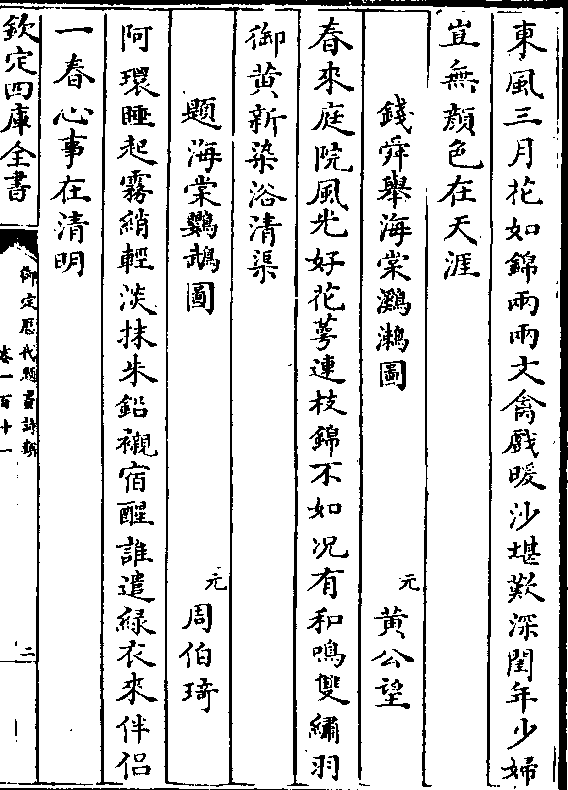 東風三月花如錦兩兩文禽戲暖沙堪歎深閨年少婦
豈無顔色在天涯
錢舜舉海棠鸂鶒圖 元 黄公望
春來庭院風光好花萼連枝錦不如况有和鳴雙繡羽
御黄新染浴清渠
題海棠鸚鵡圖 元 周伯琦
阿環睡起霧綃輕淡抹朱鉛襯宿酲誰遣緑衣來伴侣
一春心事在清明
欽定四庫全書
御定歷代題畫詩類
卷一百十一
二